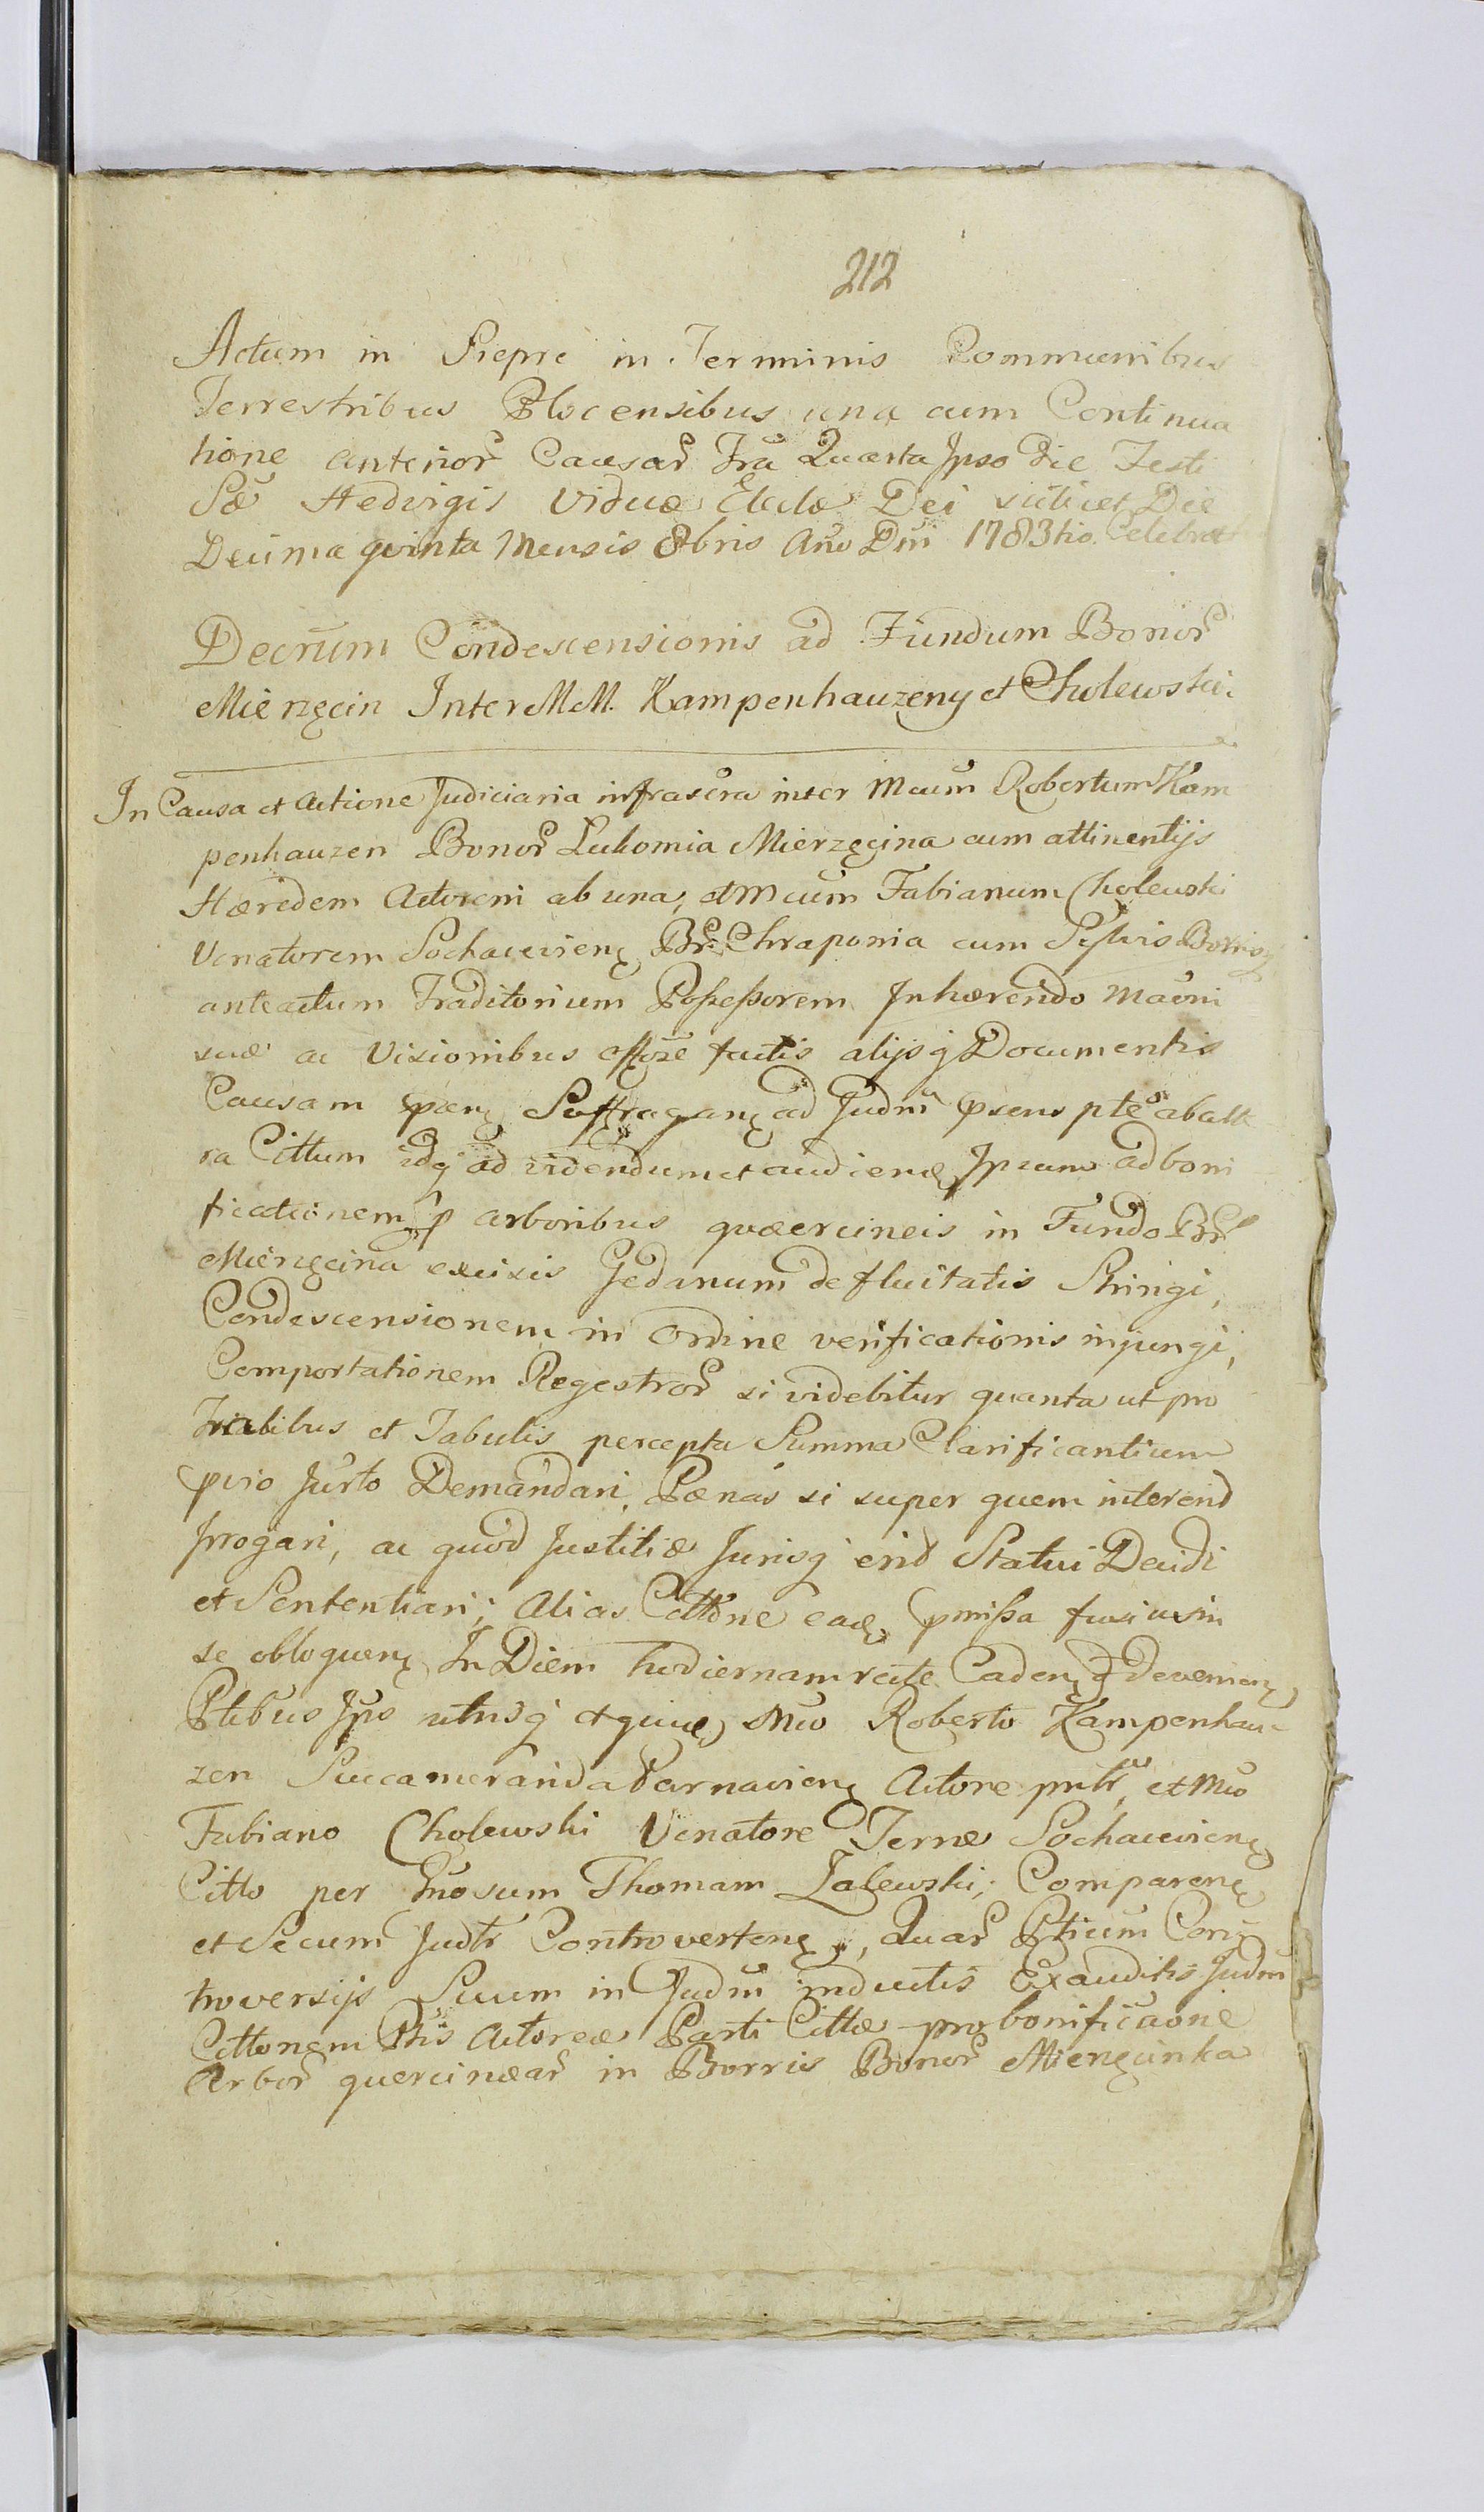 212
Actum in Sieprc in Terminis Communibus
Terrestribus Plocensibus una cum Continua
tione anterior Causar Fra Quarta Ipso Die Festi
Sae Hedvigis Viduae Electae Dei scilicet Die
Decima qvinta Mensis 8bris Ano Dni 1783tio Celebrat
Decrum Condescensionis ad Fundum Bonor
Mierzęcin Inter MM. Kampenhauzeny et Cholewski.
In Causa et Actione Judiciaria infrascra inter Mcum Robertum Kam
penhauzen Bonor Lukomia Mierzęcina cum attinentijs
Hæredem Actorem ab una, et Mcum Fabianum Cholewski
Venatorem Sochaceviens Br. Chraponia cum Sylvis Borrisq
anteactum Traditorium Possessorem Inhærendo Maoni
suæ ac Visionibus factis alijsq Documentis
Causam Suffragan ad Judm psens ptes ab alte
ra Cittum idq ad videndum et audiend Ipsum ad boni
ficationem p arboribus qvæercineis in Fundo Br
Mierzęcina excisis Gedanum defluitatis Stringi,
Condescensionem in ordine verificationis injungi,
Comportationem Regestror si videbitur quanta ut pro
Trabibus et Tabulis percepta Summa Clarificantium
pvio Jurto Demandari, Pænas si super quem interend
Irrogari, ac quod Justitiæ Jurisq erit Statui Decidi
et Sententiari; Alias Cittone ead pmissa fusius in
se obloquen In Diem hodiernam rcite Caden et devenien
Ptibus Ips utrisq et quid Mco Roberto Kampenhau-
zen Succamerarida Parnavien Actore pnlr, et Mco
Fabiano Cholewski Venatore Terræ Sochacevien
Citto per Gnosum Thomam Zalewski, Comparen
et Secum Judtr Controverten, Quar Ptium Con
troversijs Suum in Judm inductis Exauditis Judm
Cittonem Ptis Actoreæ Parti Cittæ pro bonificaone
Arbor quercinear in Borris Bonor Mierzęcinka